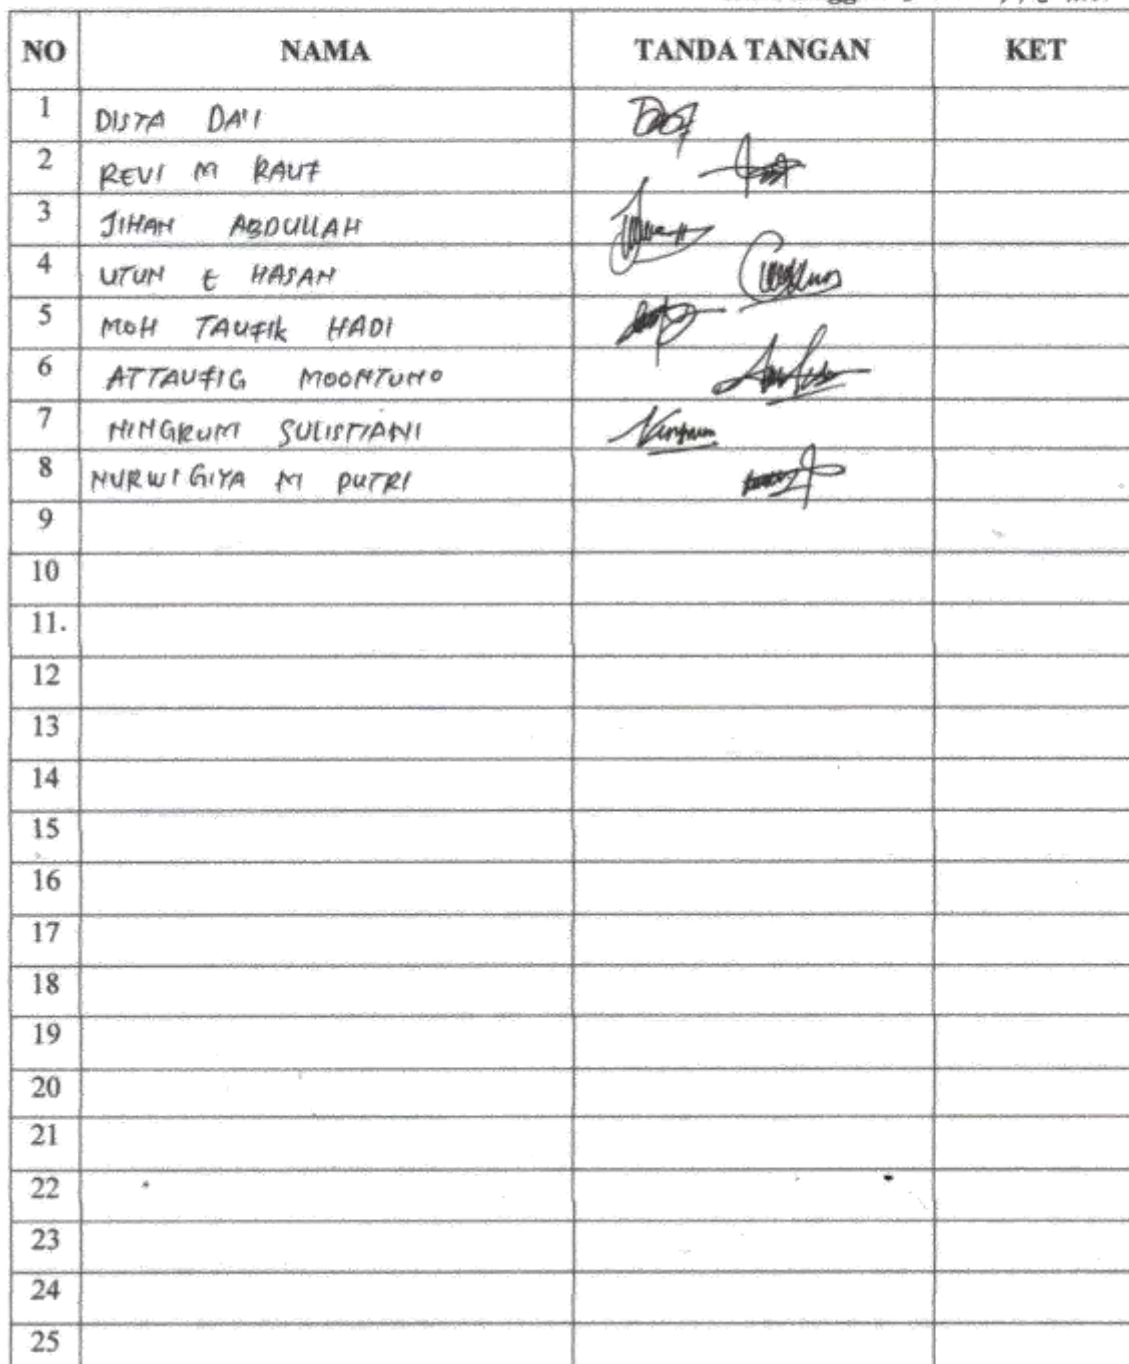 NO NAMA TANDA TANGAN KET
1 DISTA DA'I
2 REVI M RAUF
3 JIHAN ABDULLAH
4 UTUN E HASAN
5 MOH TAUFIK HADI
6 ATTAUFIG MOONTUNO
7 NINGRUM SULISTIANI
8 NURWIGIYA M PUTRI
9
10
11.
12
13
14
15
16
17
18
19
20
21
22
23
24
25